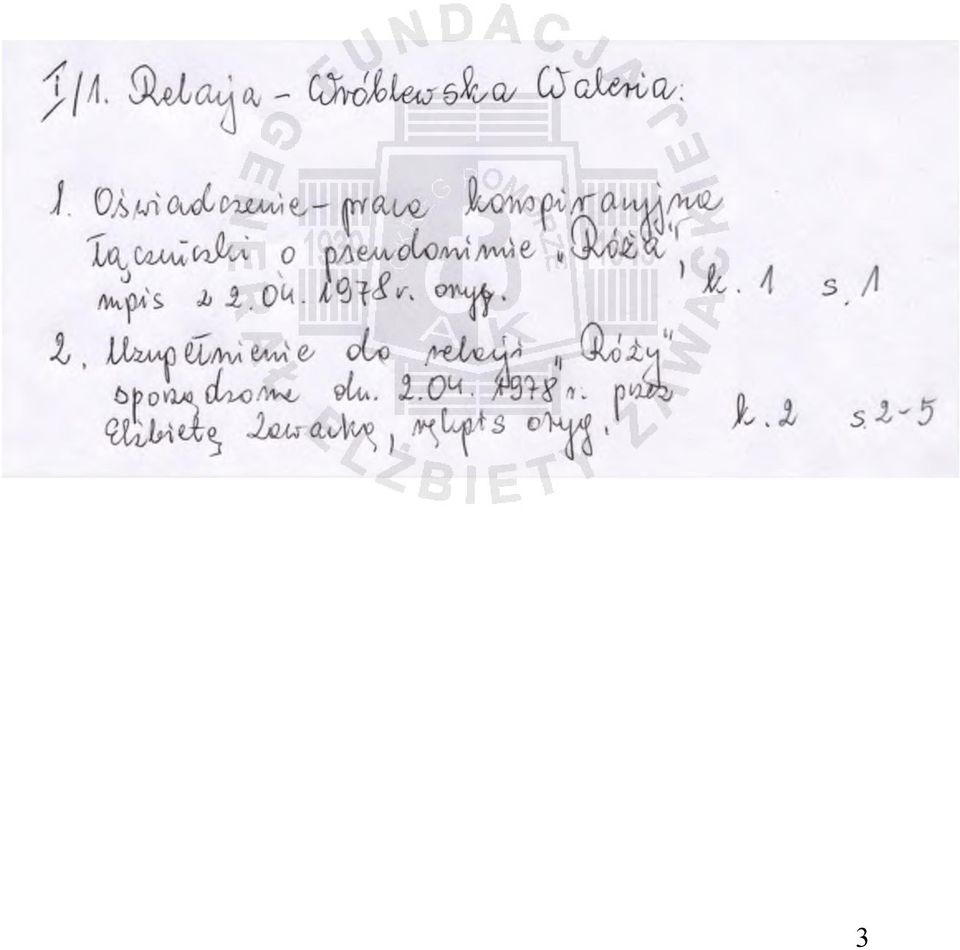 I/1. Relacja - Wróblewska Waleria:
1. Oświadczenie - praca konspiracyjna
łączniczki o pseudonimie „Róża",
mpis z 2.04.1978 r. oryg. k. 1 s. 1
2. Uzupełnienie do relacji „Róży"
sporządzone dn. 2.04.1978 r. przez
Elżbietę Zawacką, rękpis oryg. k. 2 s. 2-5
FUNDACJA GENERAŁ ELŻBIETY ZAWACKIEJ
DOM
1939
AK
3